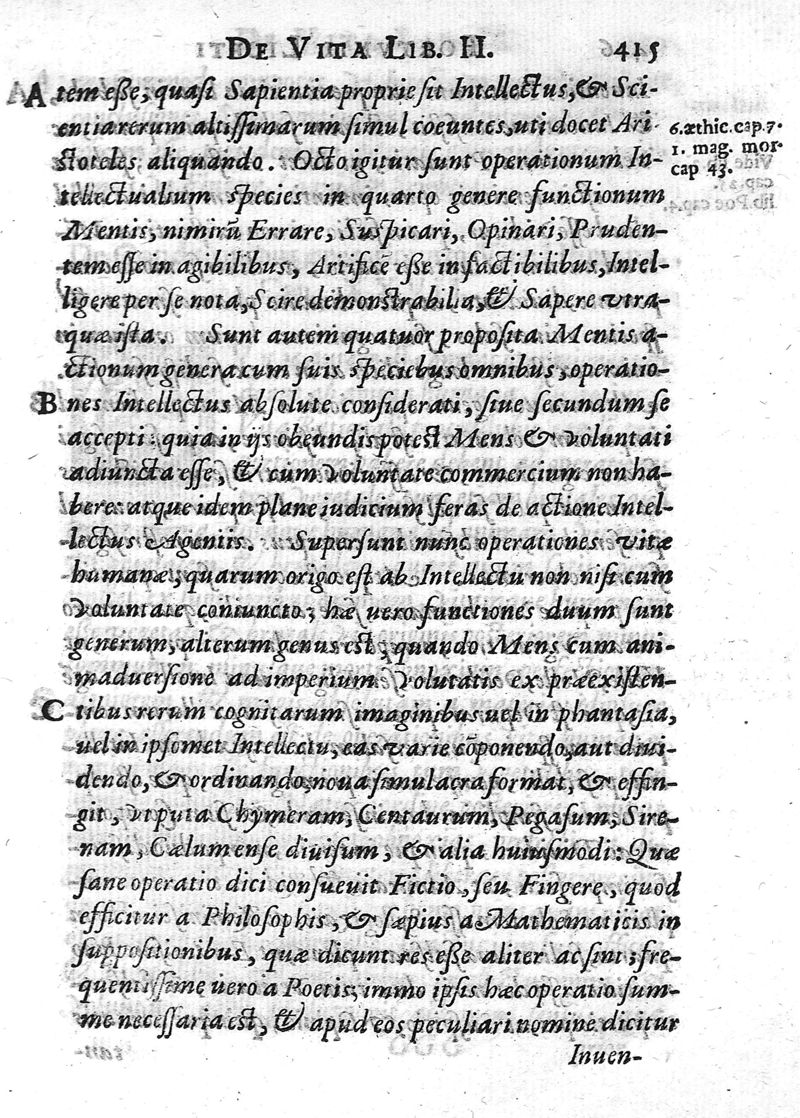 DE VITA LIB. II. 415
A tem eſſe; quaſi Sapientia proprie ſit Intellectus, & Sci-
entia rerum altiſſimarum ſimul coeuntes, uti docet Ari-
ſtoteles aliquando. Octo igitur ſunt operationum In-
tellectualium ſpecies in quarto genere functionum
Mentis, nimirũ Errare, Suſpicari, Opinari, Pruden-
tem eſſe in agibilibus, Artificẽ eſſe in factibilibus, Intel-
ligere per ſe nota, Scire demonſtrabilia, & Sapere vtra-
quæ iſta. Sunt autem quatuor propoſita Mentis a-
ctionum genera cum ſuis ſpeciebus omnibus, operatio-
B nes Intellectus abſolute conſiderati, ſiue ſecundum ſe
accepti: quia in ijs obeundis poteſt Mens & voluntati
adiuncta eſſe, & cum voluntate commercium non ha-
bere: atque idem plane iudicium feras de actione Intel-
lectus Agentis. Superſunt nunc operationes vitæ
humanæ; quarum origo eſt ab Intellectu non niſi cum
voluntate coniuncto; hæ uero functiones duum ſunt
generum, alterum genus est; quando Mens cum ani-
maduerſione ad imperium Volutatis ex præexiſten-
C tibus rerum cognitarum imaginibus uel in phantaſia,
uel in ipſomet Intellectu, eas varie cõponendo, aut diui-
dendo, & ordinando, noua ſimulacra format, & effin-
git, vt puta Chymeram, Centaurum, Pegaſum, Sire-
nam, Cælum enſe diuiſum, & alia huiuſmodi: Quæ
ſane operatio dici conſueuit Fictio, ſeu Fingere, quod
efficitur a Philoſophis, & ſæpius a Mathematicis in
ſuppoſitionibus, quæ dicunt res eſſe aliter ac ſint; fre-
quentiſſime uero a Poetis, immo ipſis hæc operatio ſum-
me neceſſaria eſt, & apud eos peculiari nomine dicitur
Inuen-
6. æthic. cap. 7.
1. mag. mor.
cap 43.